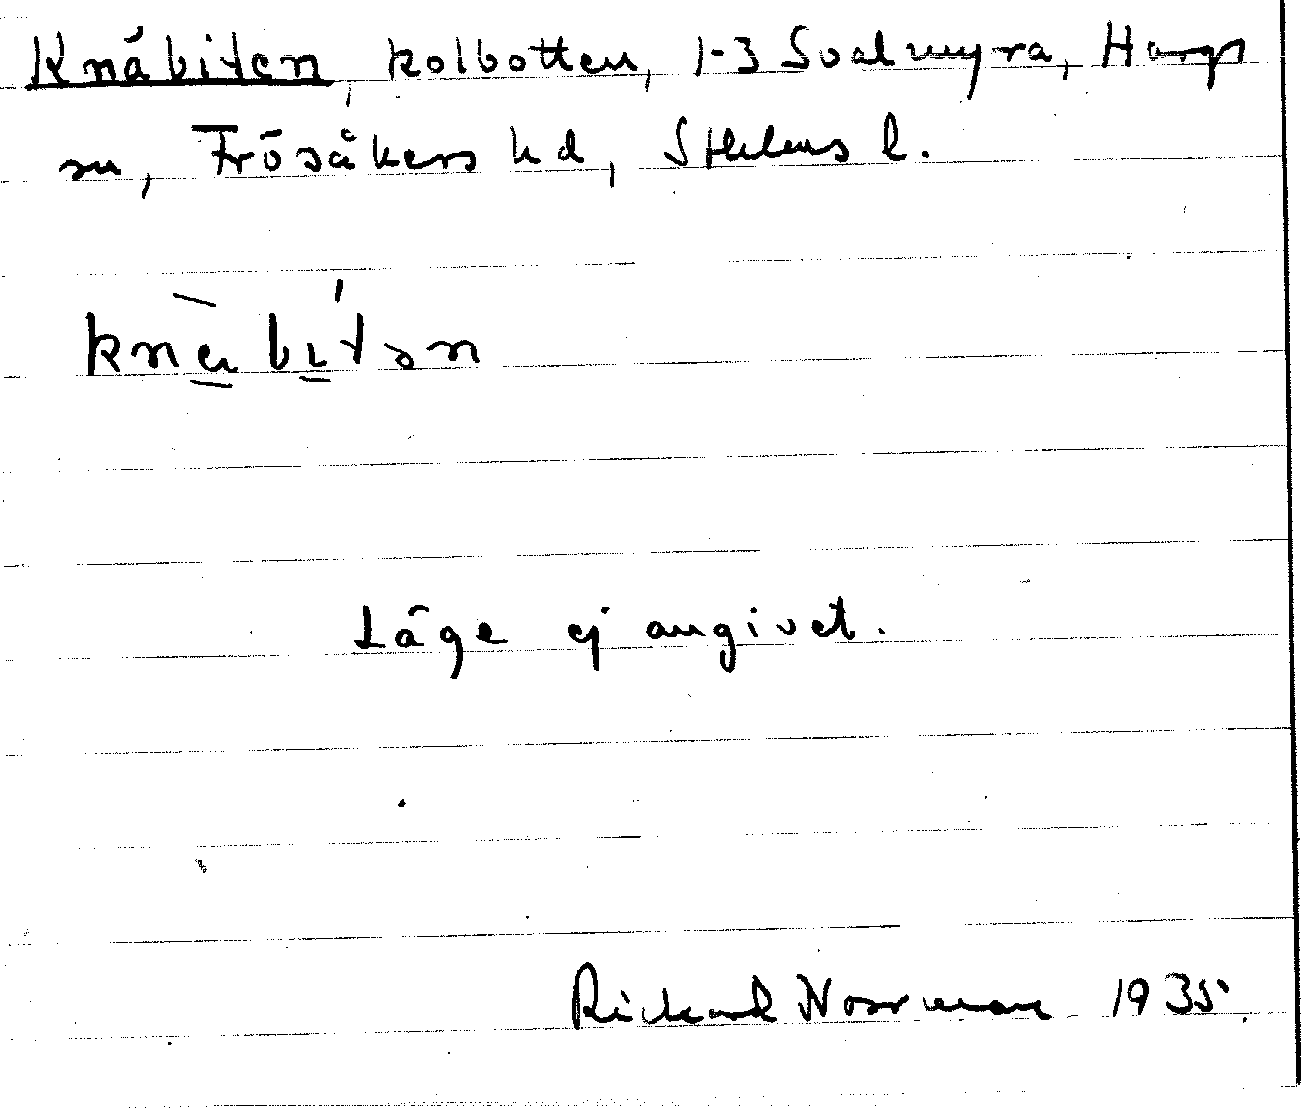 Knäbiten, kolbotten, 1-3 Svalmyra, Hargs
sn, Frösåkers hd, Sthlms l.
knäbitən
Läge ej angivet.
Rickard Norrman 1935